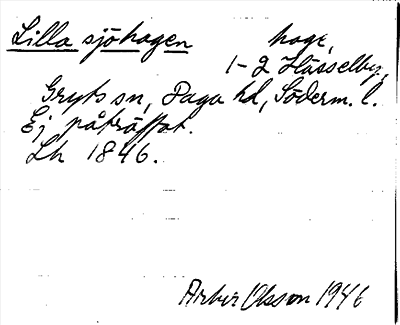 Lilla sjöhagen hage,
1-2 Hässelby,
Gryts sn, Daga hd, Söderm. l.
Ej påträffat.
Lh 1846.
Olsson 1946